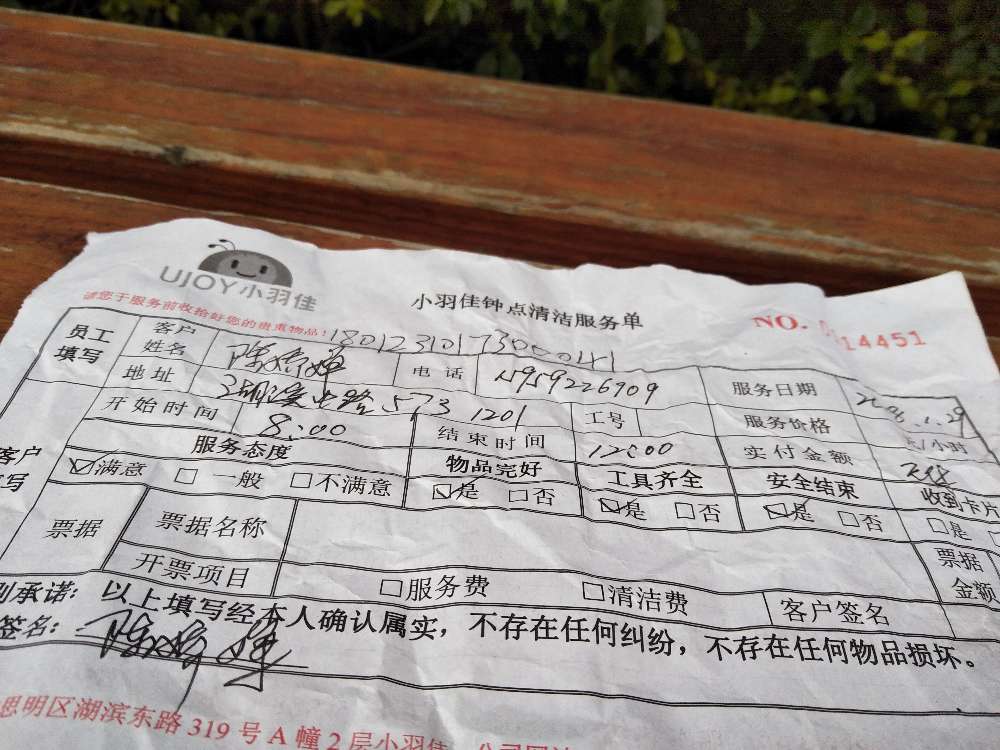 UJOY小羽佳
小羽佳钟点清洁服务单
请您于服务前收拾好您的贵重物品!
NO. 14451
员工填写 客户姓名 电话 15959226909 服务日期
地址 573 1201 工号 服务价格 元/小时
开始时间 8:00 结束时间 12:00 实付金额
服务态度 物品完好 工具齐全 安全结束 收到卡片
☑满意 □一般 □不满意 ☑是 □否 ☑是 □否 ☑是 □否 □是
票据 票据名称 票据金额
开票项目 □服务费 □清洁费 客户签名
承诺:以上填写经本人确认属实,不存在任何纠纷,不存在任何物品损坏。
签名:
思明区湖滨东路319号A幢2层小羽佳